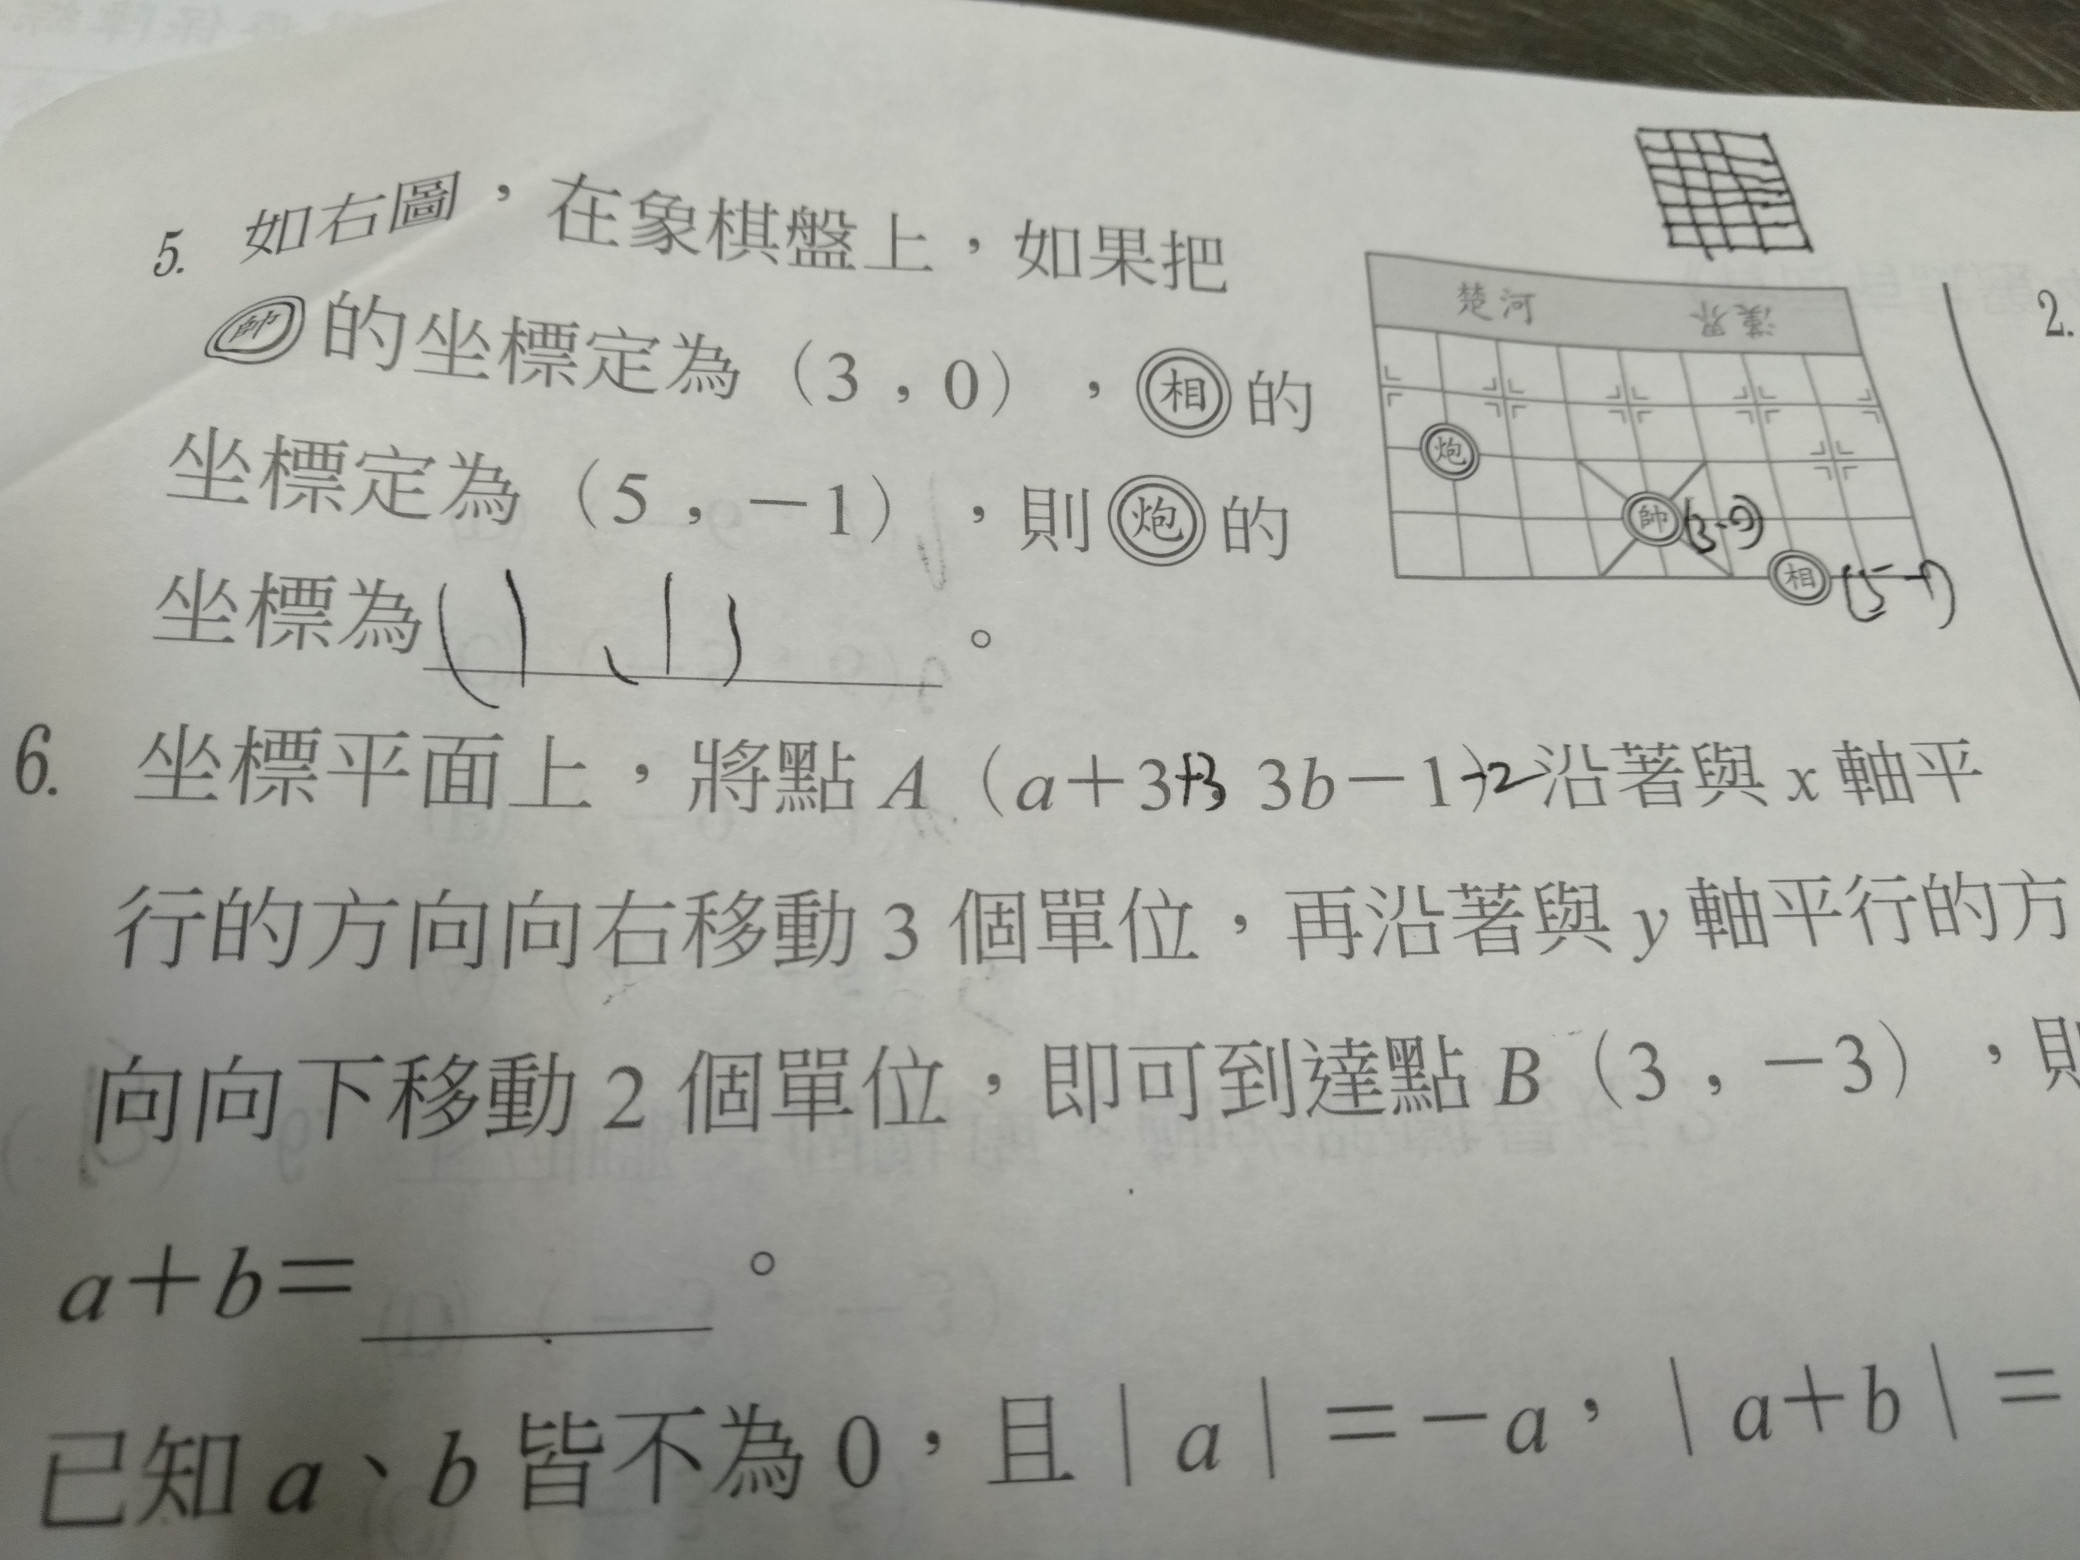 5. 如右圖，在象棋盤上，如果把
帥的坐標定為（3，0），相的
坐標定為（5，－1），則炮的
坐標為(1、1)。
楚河 漢界
炮
帥(3-0)
相(5-1)
2.
6. 坐標平面上，將點 A（a＋3+3 3b－1)-2沿著與 x 軸平
行的方向向右移動 3 個單位，再沿著與 y 軸平行的方
向向下移動 2 個單位，即可到達點 B（3，－3），則
a＋b＝ 。
已知 a、b 皆不為 0，且｜a｜＝－a，｜a＋b｜＝